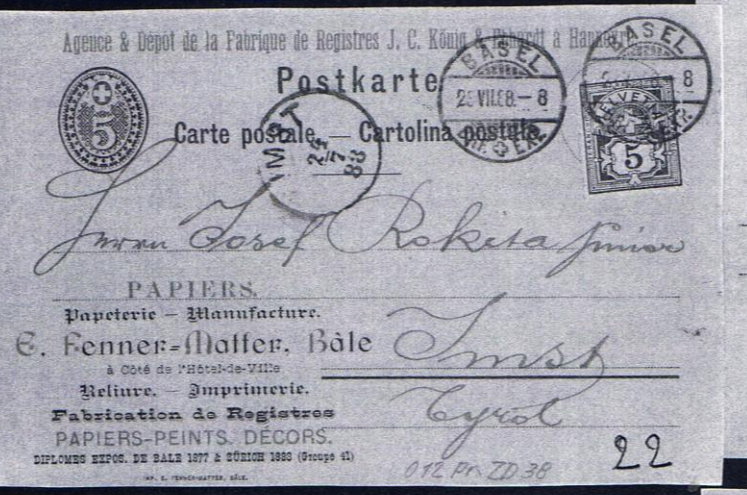 Agence & Dépot de la Fabrique de Registres J. C. König & Ebhardt à Hannovre
Postkarte
Carte postale. — Cartolina postale.
5
BASEL
25 VII.88.– 8
BRF. EXP.
BASEL
8
EXP.
HELVETIA
5
IMST
24
7
88
Herrn Josef Rokita junior
PAPIERS.
Papeterie — Manufacture.
E. Fenner-Matter, Bâle
à Côté de l'Hôtel-de-Ville
Imst
Reliure. — Imprimerie.
Fabrication de Registres
Tyrol
PAPIERS-PEINTS. DÉCORS.
DIPLOMES EXPOS. DE BALE 1877 & ZÜRICH 1883 (Groupe 41)
22
IMP. E. FENNER-MATTER, BÂLE.